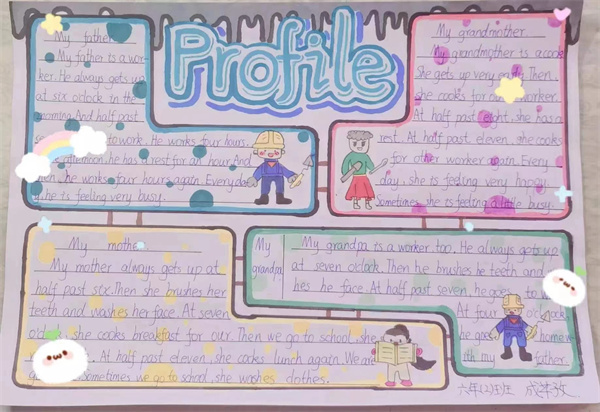 Profile
My father
My father is a wor-
ker. He always gets up
at six o'clock in the
morning. And half past
to work. He works four hours.
he has a rest for an hour. And
he works four hours again. Everyday
he is feeling very busy.
My grandmother
My grandmother is a cook
She gets up very early. Then
she cooks for worker.
At half past eight, she has a
rest. At half past eleven, she cooks
for other worker again. Every
day, she is feeling very happy
Sometimes, she is feeling a little busy.
My mother
My mother always gets up at
half past six. Then she brushes her
teeth and washes her face. At seven
she cooks breakfast for our. Then we go to school, she
At half past eleven, she cooks lunch again. We are
sometimes we go to school, she washes clothes.
My
grandpa
My grandpa is a worker too. He always gets up
at seven o'clock. Then he brushes he teeth and
hes he face. At half past seven, he goes to
At four o'clock
he goes home
with my father.
六年(2)班